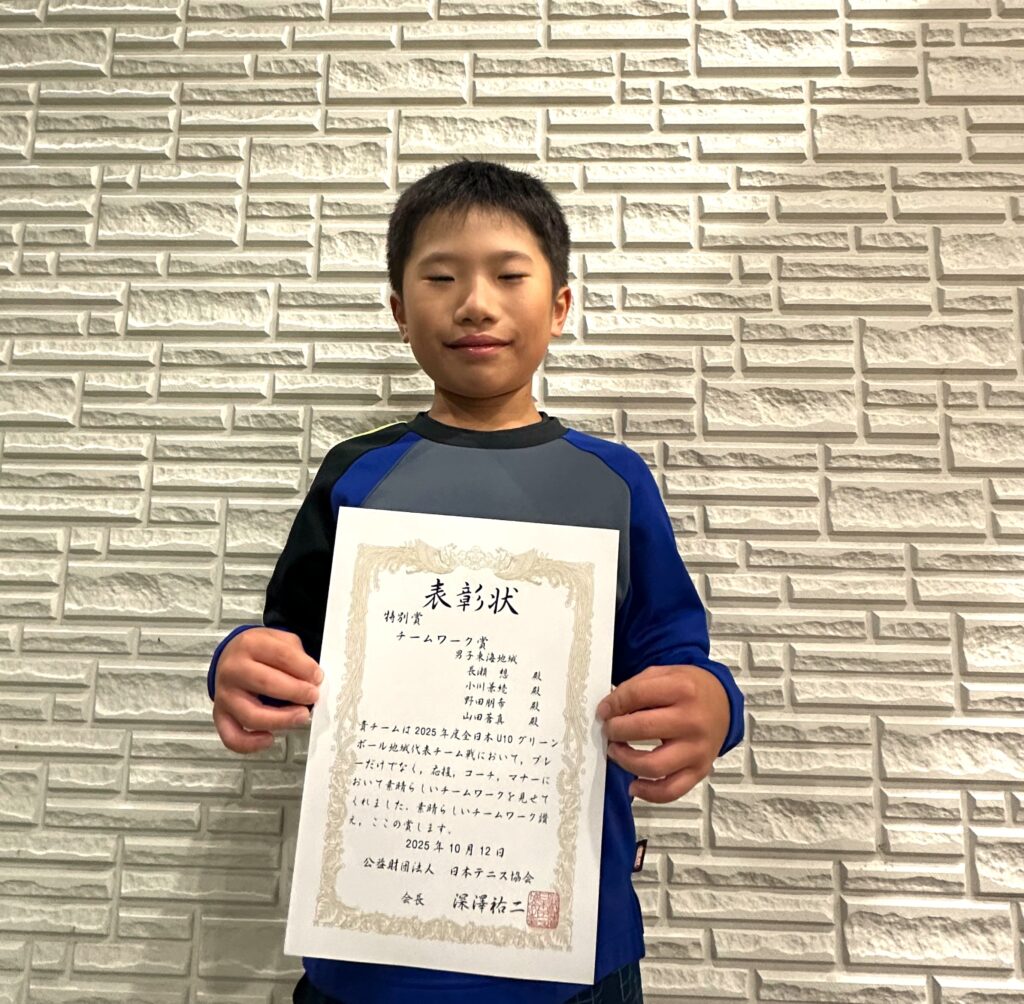 表彰状
特別賞
チームワーク賞
男子東海地域
長瀬 想 殿
小川兼続 殿
野田朋希 殿
山田蒼真 殿
貴チームは2025年度全日本U10グリーン
ボール地域代表チーム戦において，プレ
ーだけでなく，応援，コーチ，マナーに
おいて素晴らしいチームワークを見せて
くれました．素晴らしいチームワーク讃
え，ここの賞します．
2025年10月12日
公益財団法人 日本テニス協会
会長 深澤祐二